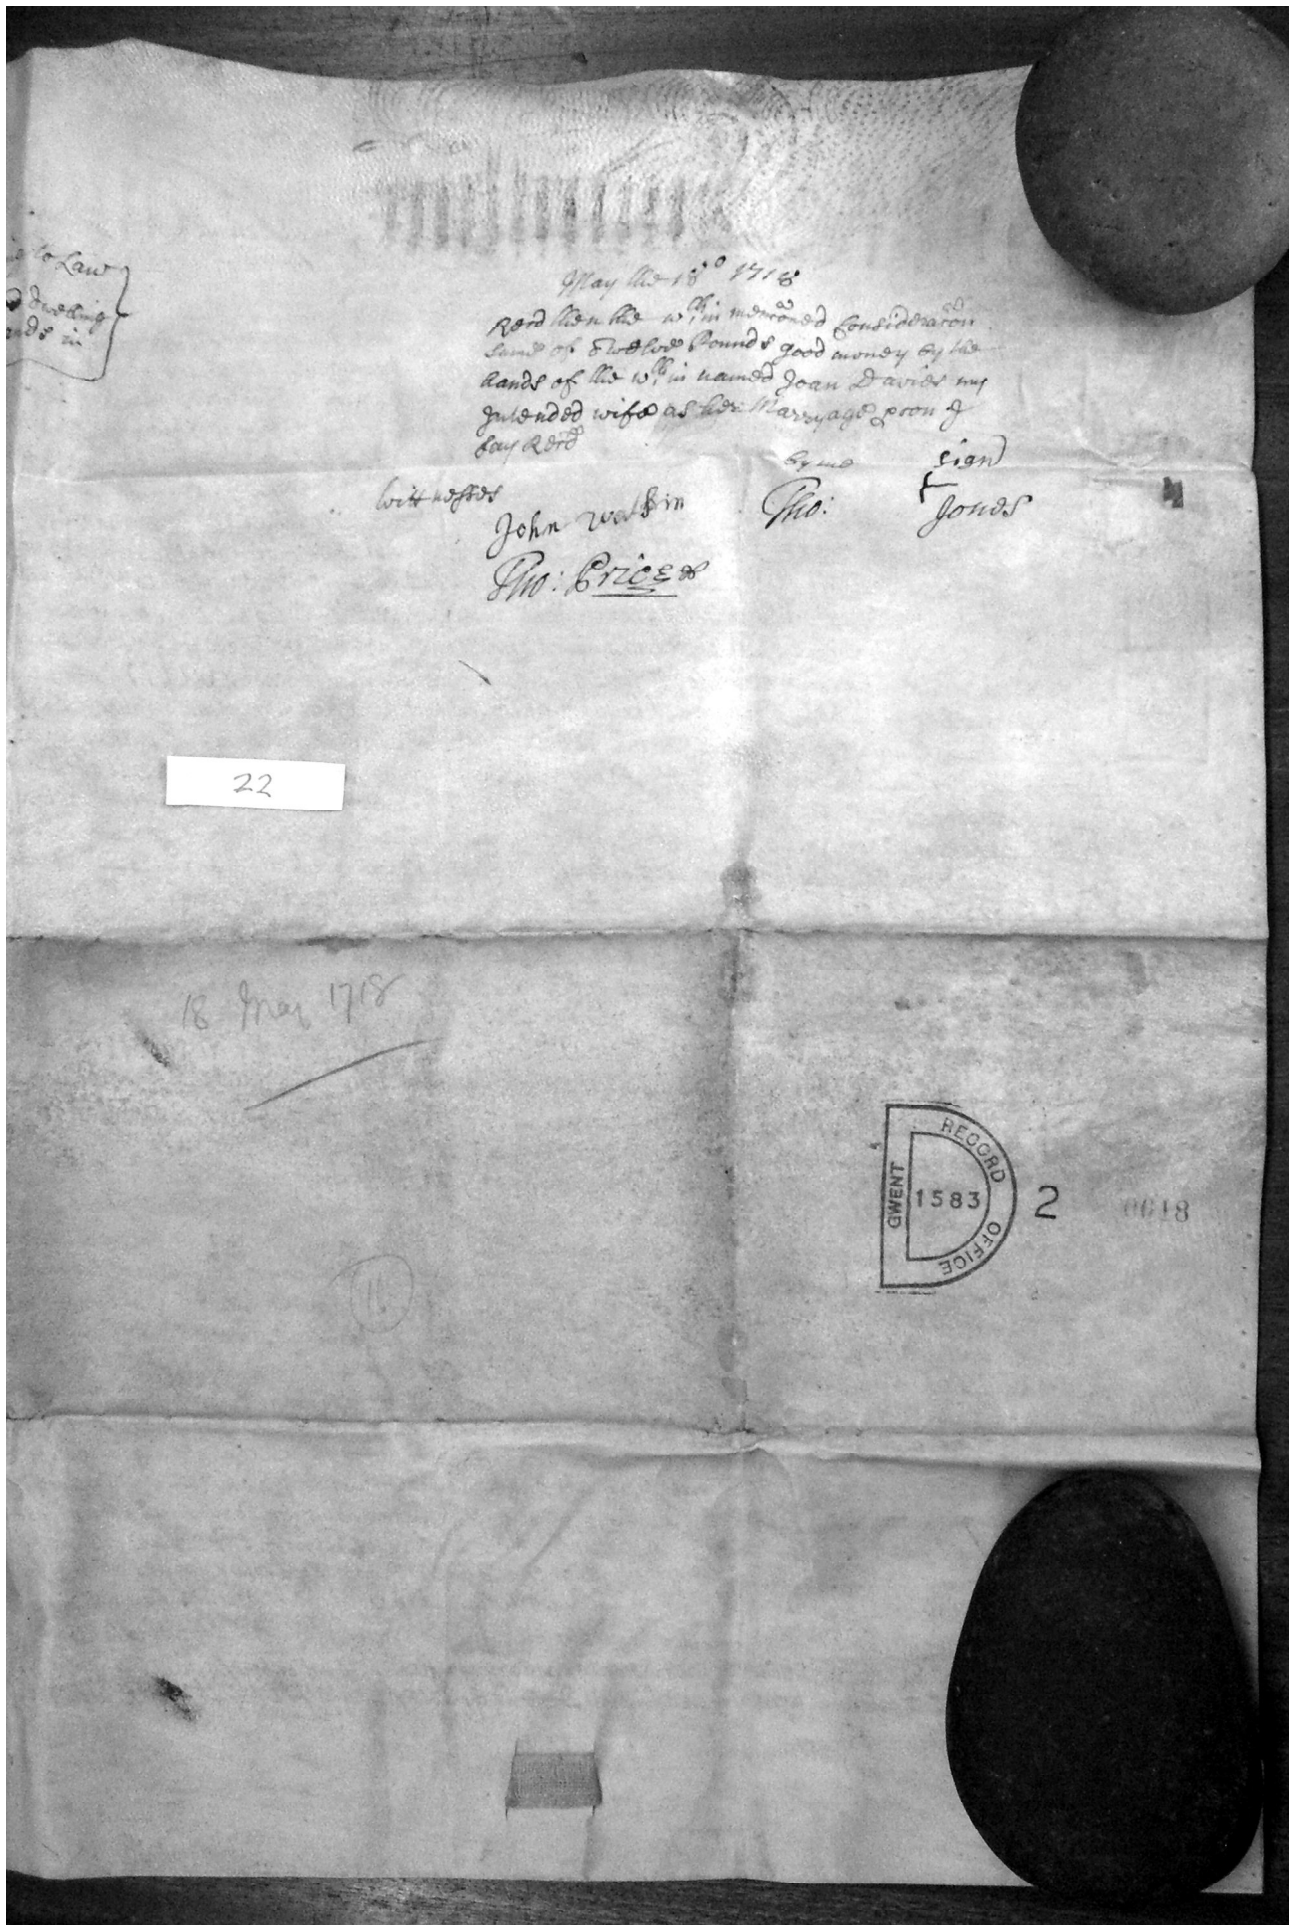 to Law
dwelling
ands in
May the 18º 1718
Recd then the wthin menconed Consideracon
Sume of Twelve Pounds good money by the
hands of the wthin named Joan Davies my
Intended wife as her Marryage pcon I
say Recd
by me sign
Tho: Jones
Wittnesses
John Watkin
Tho: Price
22
18 May 1718
GWENT RECORD OFFICE
1583
2
0618
16